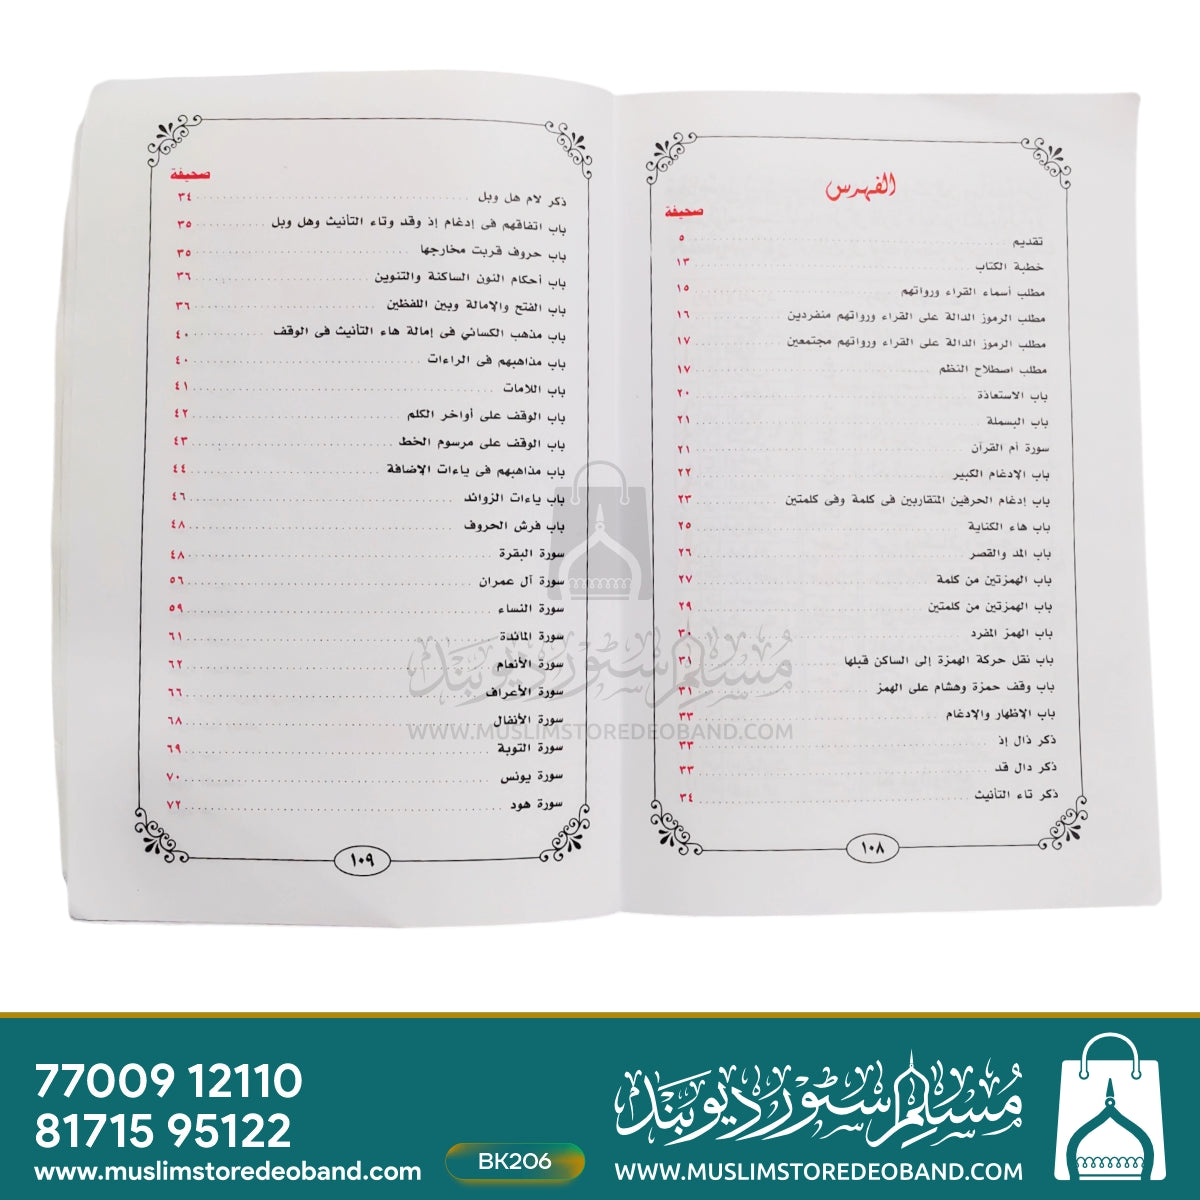 الفهرس
صحيفة
تقديم ٥
خطبة الكتاب ١٣
مطلب أسماء القراء ورواتهم ١٥
مطلب الرموز الدالة على القراء ورواتهم منفردين ١٦
مطلب الرموز الدالة على القراء ورواتهم مجتمعين ١٧
مطلب اصطلاح النظم ١٧
باب الاستعاذة ٢٠
باب البسملة ٢١
سورة أم القرآن ٢١
باب الإدغام الكبير ٢٢
باب إدغام الحرفين المتقاربين فى كلمة وفى كلمتين ٢٣
باب هاء الكناية ٢٥
باب المد والقصر ٢٦
باب الهمزتين من كلمة ٢٧
باب الهمزتين من كلمتين ٢٩
باب الهمز المفرد ٣٠
باب نقل حركة الهمزة إلى الساكن قبلها ٣١
باب وقف حمزة وهشام على الهمز ٣١
باب الإظهار والإدغام ٣٣
ذكر ذال إذ ٣٣
ذكر دال قد ٣٣
ذكر تاء التأنيث ٣٤
١٠٨
صحيفة
ذكر لام هل وبل ٣٤
باب اتفاقهم فى إدغام إذ وقد وتاء التأنيث وهل وبل ٣٥
باب حروف قربت مخارجها ٣٥
باب أحكام النون الساكنة والتنوين ٣٦
باب الفتح والإمالة وبين اللفظين ٣٦
باب مذهب الكسائي فى إمالة هاء التأنيث فى الوقف ٤٠
باب مذاهبهم فى الراءات ٤٠
باب اللامات ٤١
باب الوقف على أواخر الكلم ٤٢
باب الوقف على مرسوم الخط ٤٣
باب مذاهبهم فى ياءات الإضافة ٤٤
باب ياءات الزوائد ٤٦
باب فرش الحروف ٤٨
سورة البقرة ٤٨
سورة آل عمران ٥٦
سورة النساء ٥٩
سورة المائدة ٦١
سورة الأنعام ٦٢
سورة الأعراف ٦٦
سورة الأنفال ٦٨
سورة التوبة ٦٩
سورة يونس ٧٠
سورة هود ٧٢
١٠٩
مسلم سٹور دیوبند
WWW.MUSLIMSTOREDEOBAND.COM
77009 12110
81715 95122
www.muslimstoredeoband.com
BK206
مسلم سٹور دیوبند
WWW.MUSLIMSTOREDEOBAND.COM